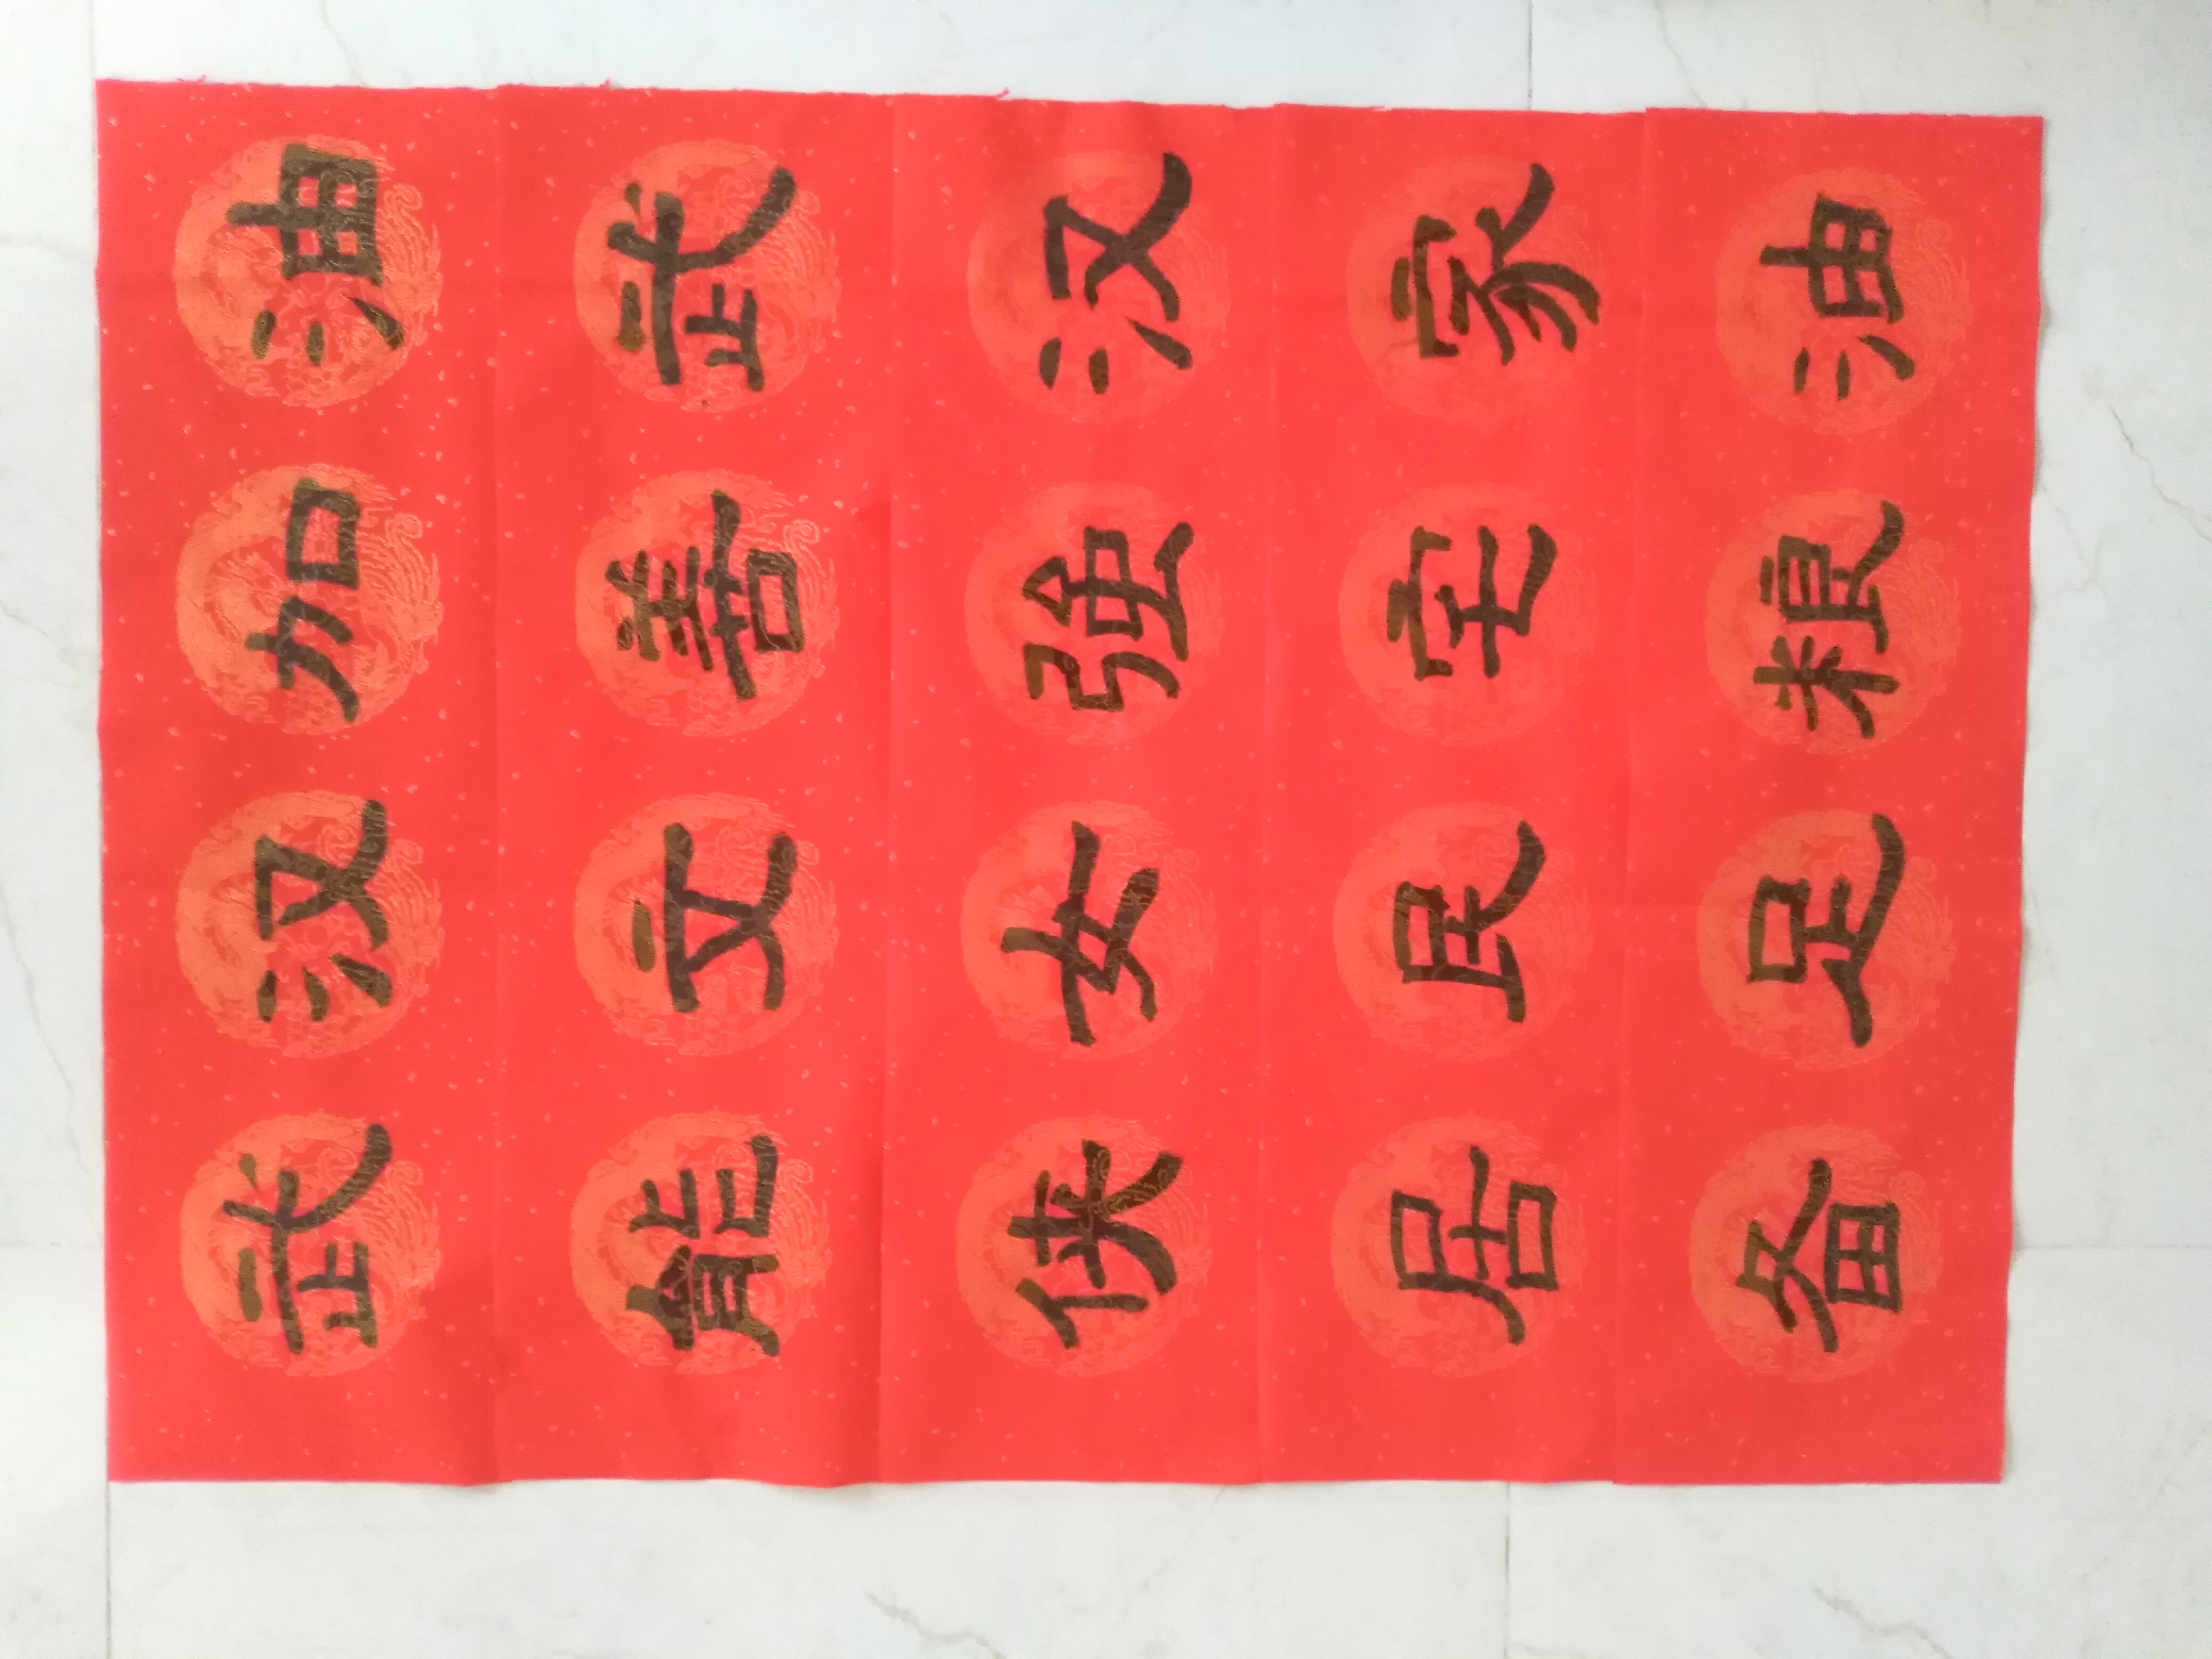 武汉加油
能文善武
侠女强汉
居民宅家
备足粮油